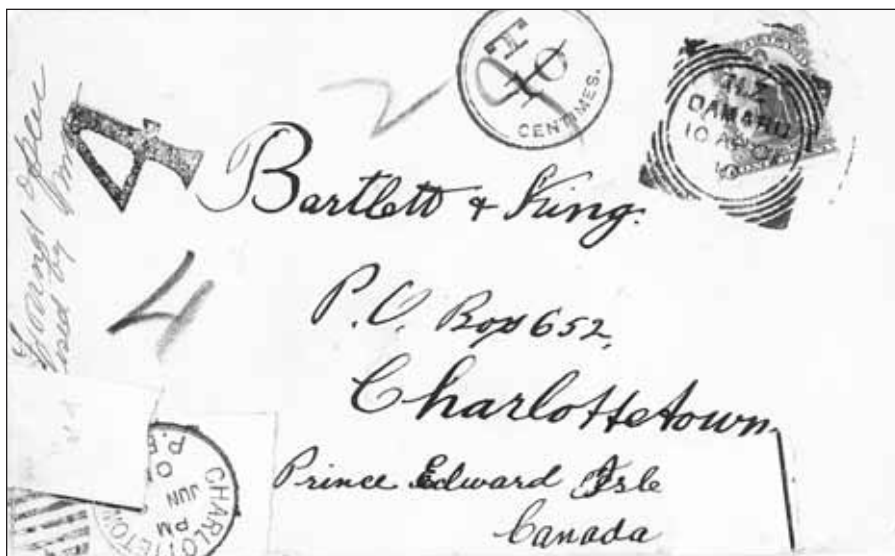 T
40
CENTIMES.
N.Z
OAMARU
10 AP 0
4
Bartlett & King.
4
P.O. Box 652,
Charlottetown.
Prince Edward Isle
Canada
Found open
by
CHARLOTTETOW
P.E
JUN
PM